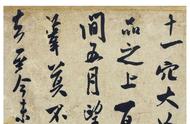 十一穴大
品之上百
間五月望
莫不
去至今未